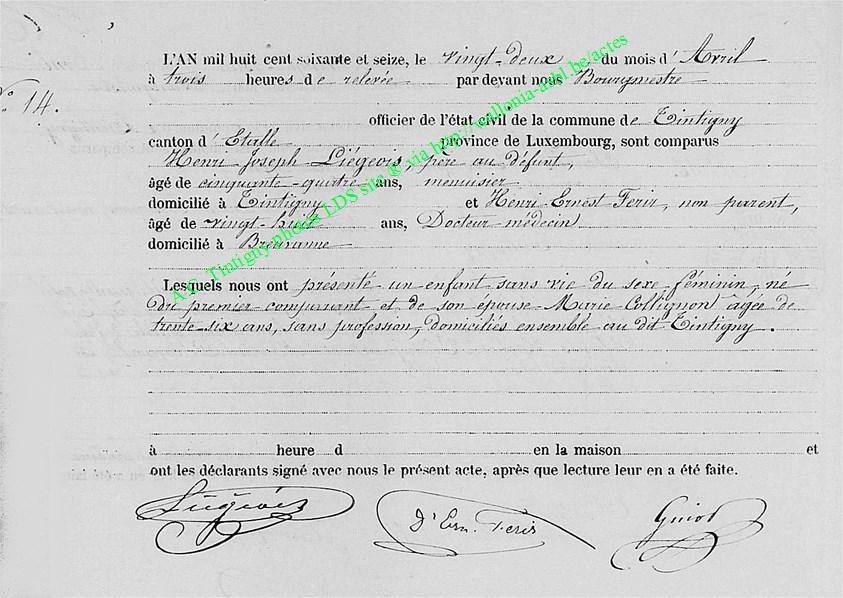 L'AN mil huit cent soixante et seize, le vingt-deux du mois d'Avril
à trois heures de relevée par devant nous Bourgmestre
N° 14.
officier de l'état civil de la commune de Tintigny
canton d'Etalle province de Luxembourg, sont comparus
Henri Joseph Liégeois, père au défunt,
âgé de cinquante-quatre ans, menuisier
domicilié à Tintigny et Henri Ernest Ferir, non parent,
âgé de vingt-huit ans, Docteur-médecin
domicilié à
Lesquels nous ont présenté un enfant sans vie du sexe féminin, né
du premier comparant et de son épouse Marie Collignon âgée de
trente-six ans, sans profession, domiciliés ensemble au dit Tintigny.
à heure d en la maison et
ont les déclarants signé avec nous le présent acte, après que lecture leur en a été faite.
Liégeois Dr Ern. Ferir Guiot
A.C. Tintigny photos LDS site © via http://wallonia-asbl.be/actes